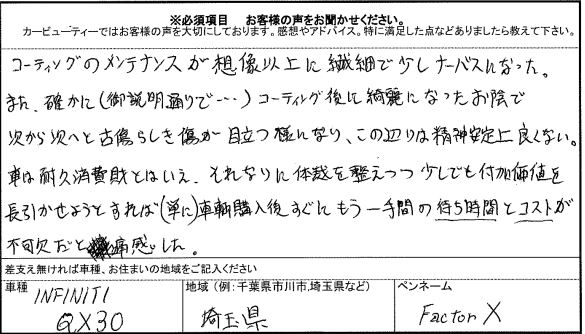 ※必須項目　お客様の声をお聞かせください。
カービューティーではお客様の声を大切にしております。感想やアドバイス。特に満足した点などありましたら教えて下さい。
コーティングのメンテナンスが想像以上に繊細で少しナーバスになった。
また、確かに(御説明通りで…)コーティング後に綺麗になったお陰で
次から次へと古傷らしき傷が目立つ様になり、この辺りは精神安定上良くない。
車は耐久消費財とはいえ、それなりに体裁を整えつつ少しでも付加価値を
長引かせようとすれば(単に)車輌購入後すぐにもう一手間の待ち時間とコストが
不可欠だと痛感した。
差支え無ければ車種、お住まいの地域をご記入ください
車種 INFINITI QX30
地域 (例:千葉県市川市,埼玉県など) 埼玉県
ペンネーム Factor X